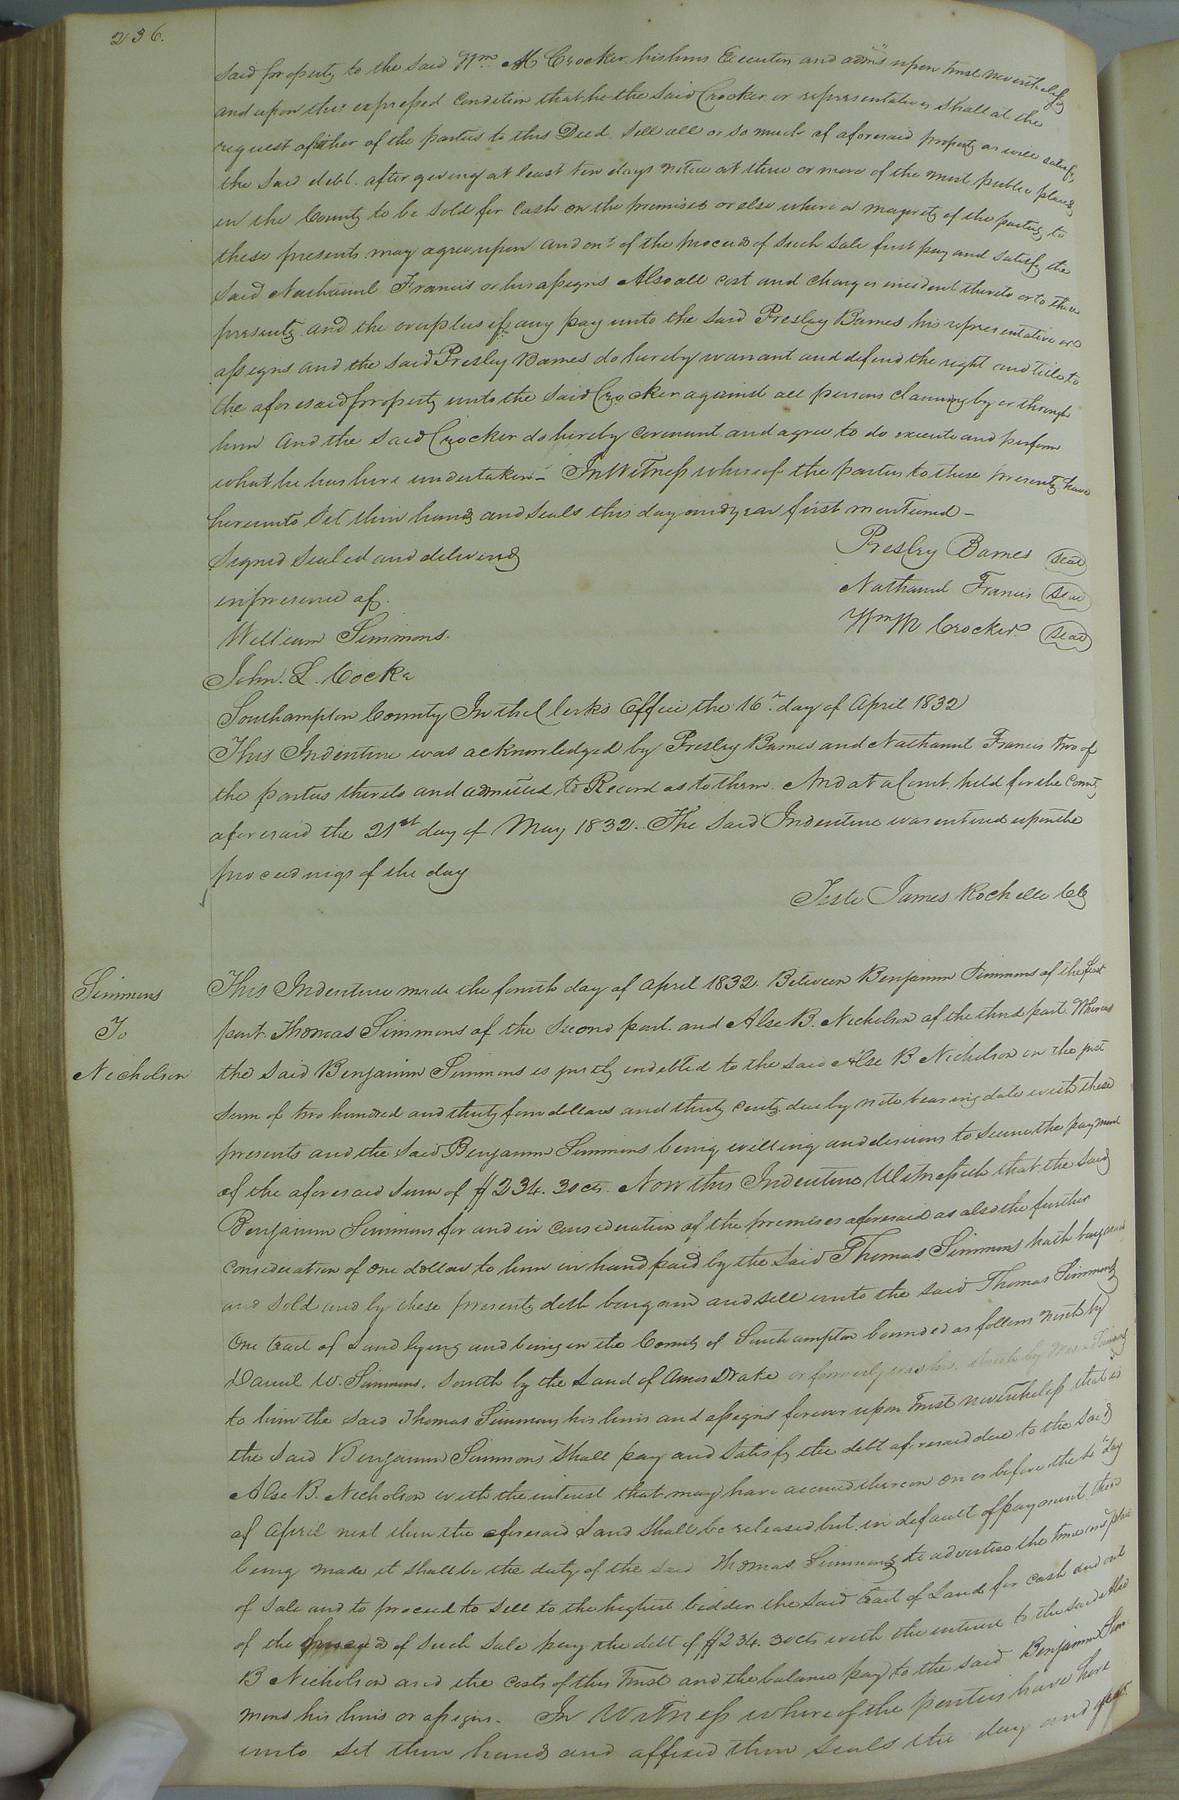 236.
said property to the said Wm M Crocker his heirs Executors and admrs upon trust nevertheless
and upon this expressed Condition that he the said Crocker or representatives shall at the
request of either of the parties to this Deed sell all or so much of aforesaid property as will satisfy
the said debt. after giving at least ten days notice at three or more of the most public places
in the County to be sold for Cash on the premises or else where a majority of the parties to
these presents may agree upon and out of the proceeds of such sale first pay and satisfy the
said Nathaniel Francis or his assigns Also all cost and charges incident thereto or to these
presents and the overplus if any pay unto the said Presley Barnes his representatives or
assigns and the said Presley Barnes do hereby warrant and defend the right and title to
the aforesaid property unto the said Crocker against all persons claiming by or through
him And the said Crocker do hereby covenant and agree to do execute and perform
what he has here undertaken - In Witness whereof the parties to these presents have
hereunto set their hands and seals this day and year first mentioned -
Signed sealed and delivered
in presence of.
William Simmons.
John. L. Cocke
Presley Barnes seal
Nathaniel Francis seal
Wm M Crocker seal
Southampton County In the Clerks Office the 16th day of April 1832
This Indenture was acknowledged by Presley Barnes and Nathaniel Francis two of
the parties thereto and admitted to Record as to them. And at a Court held for the County
aforesaid the 21st day of May 1832. The said Indenture was entered upon the
proceedings of the day
Teste James Rochelle CC
Simmons
To
Nicholson
This Indenture made the fourth day of April 1832 Between Benjamin Simmons of the first
part. Thomas Simmons of the second part. and Alse B. Nicholson of the third part. Whereas
the said Benjamin Simmons is justly indebted to the said Alse B Nicholson in the just
sum of two hundred and thirty four dollars and thirty cents due by note bearing date with these
presents and the said Benjamin Simmons being willing and desirous to secure the payment
of the aforesaid sum of $234. 30 cts. Now this Indenture Witnesseth that the said
Benjamin Simmons for and in consideration of the premises aforesaid as also the further
consideration of one dollar to him in hand paid by the said Thomas Simmons hath bargained
and sold and by these presents doth bargain and sell unto the said Thomas Simmons
One tract of Land lying and being in the County of Southampton bounded as follows North by
Daniel W. Simmons. South by the Land of Amos Drake or formerly
to him the said Thomas Simmons his heirs and assigns forever upon Trust nevertheless that is
the said Benjamin Simmons shall pay and satisfy the debt aforesaid due to the said
Alse B. Nicholson with the interest that may have accrued thereon on or before the day
of April next then the aforesaid Land shall be released but in default of payment then
being made it shall be the duty of the said Thomas Simmons to advertise the time and place
of sale and to proceed to sell to the highest bidder the said tract of Land for cash and out
of the proceeds of such sale pay the debt of $234. 30 cts with the interest to the said Alse
B Nicholson and the costs of this Trust and the balance pay to the said Benjamin Sim
mons his heirs or assigns. In Witness whereof the parties have here
unto set their hands and affixed their seals the day and year